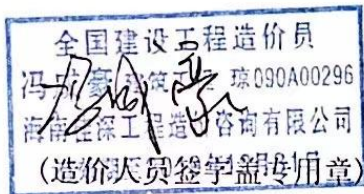 全国建设工程造价员
冯 豪 建筑 琼090A00296
海南 深工程造 咨询有限公司
(造价人员签字盖专用章)